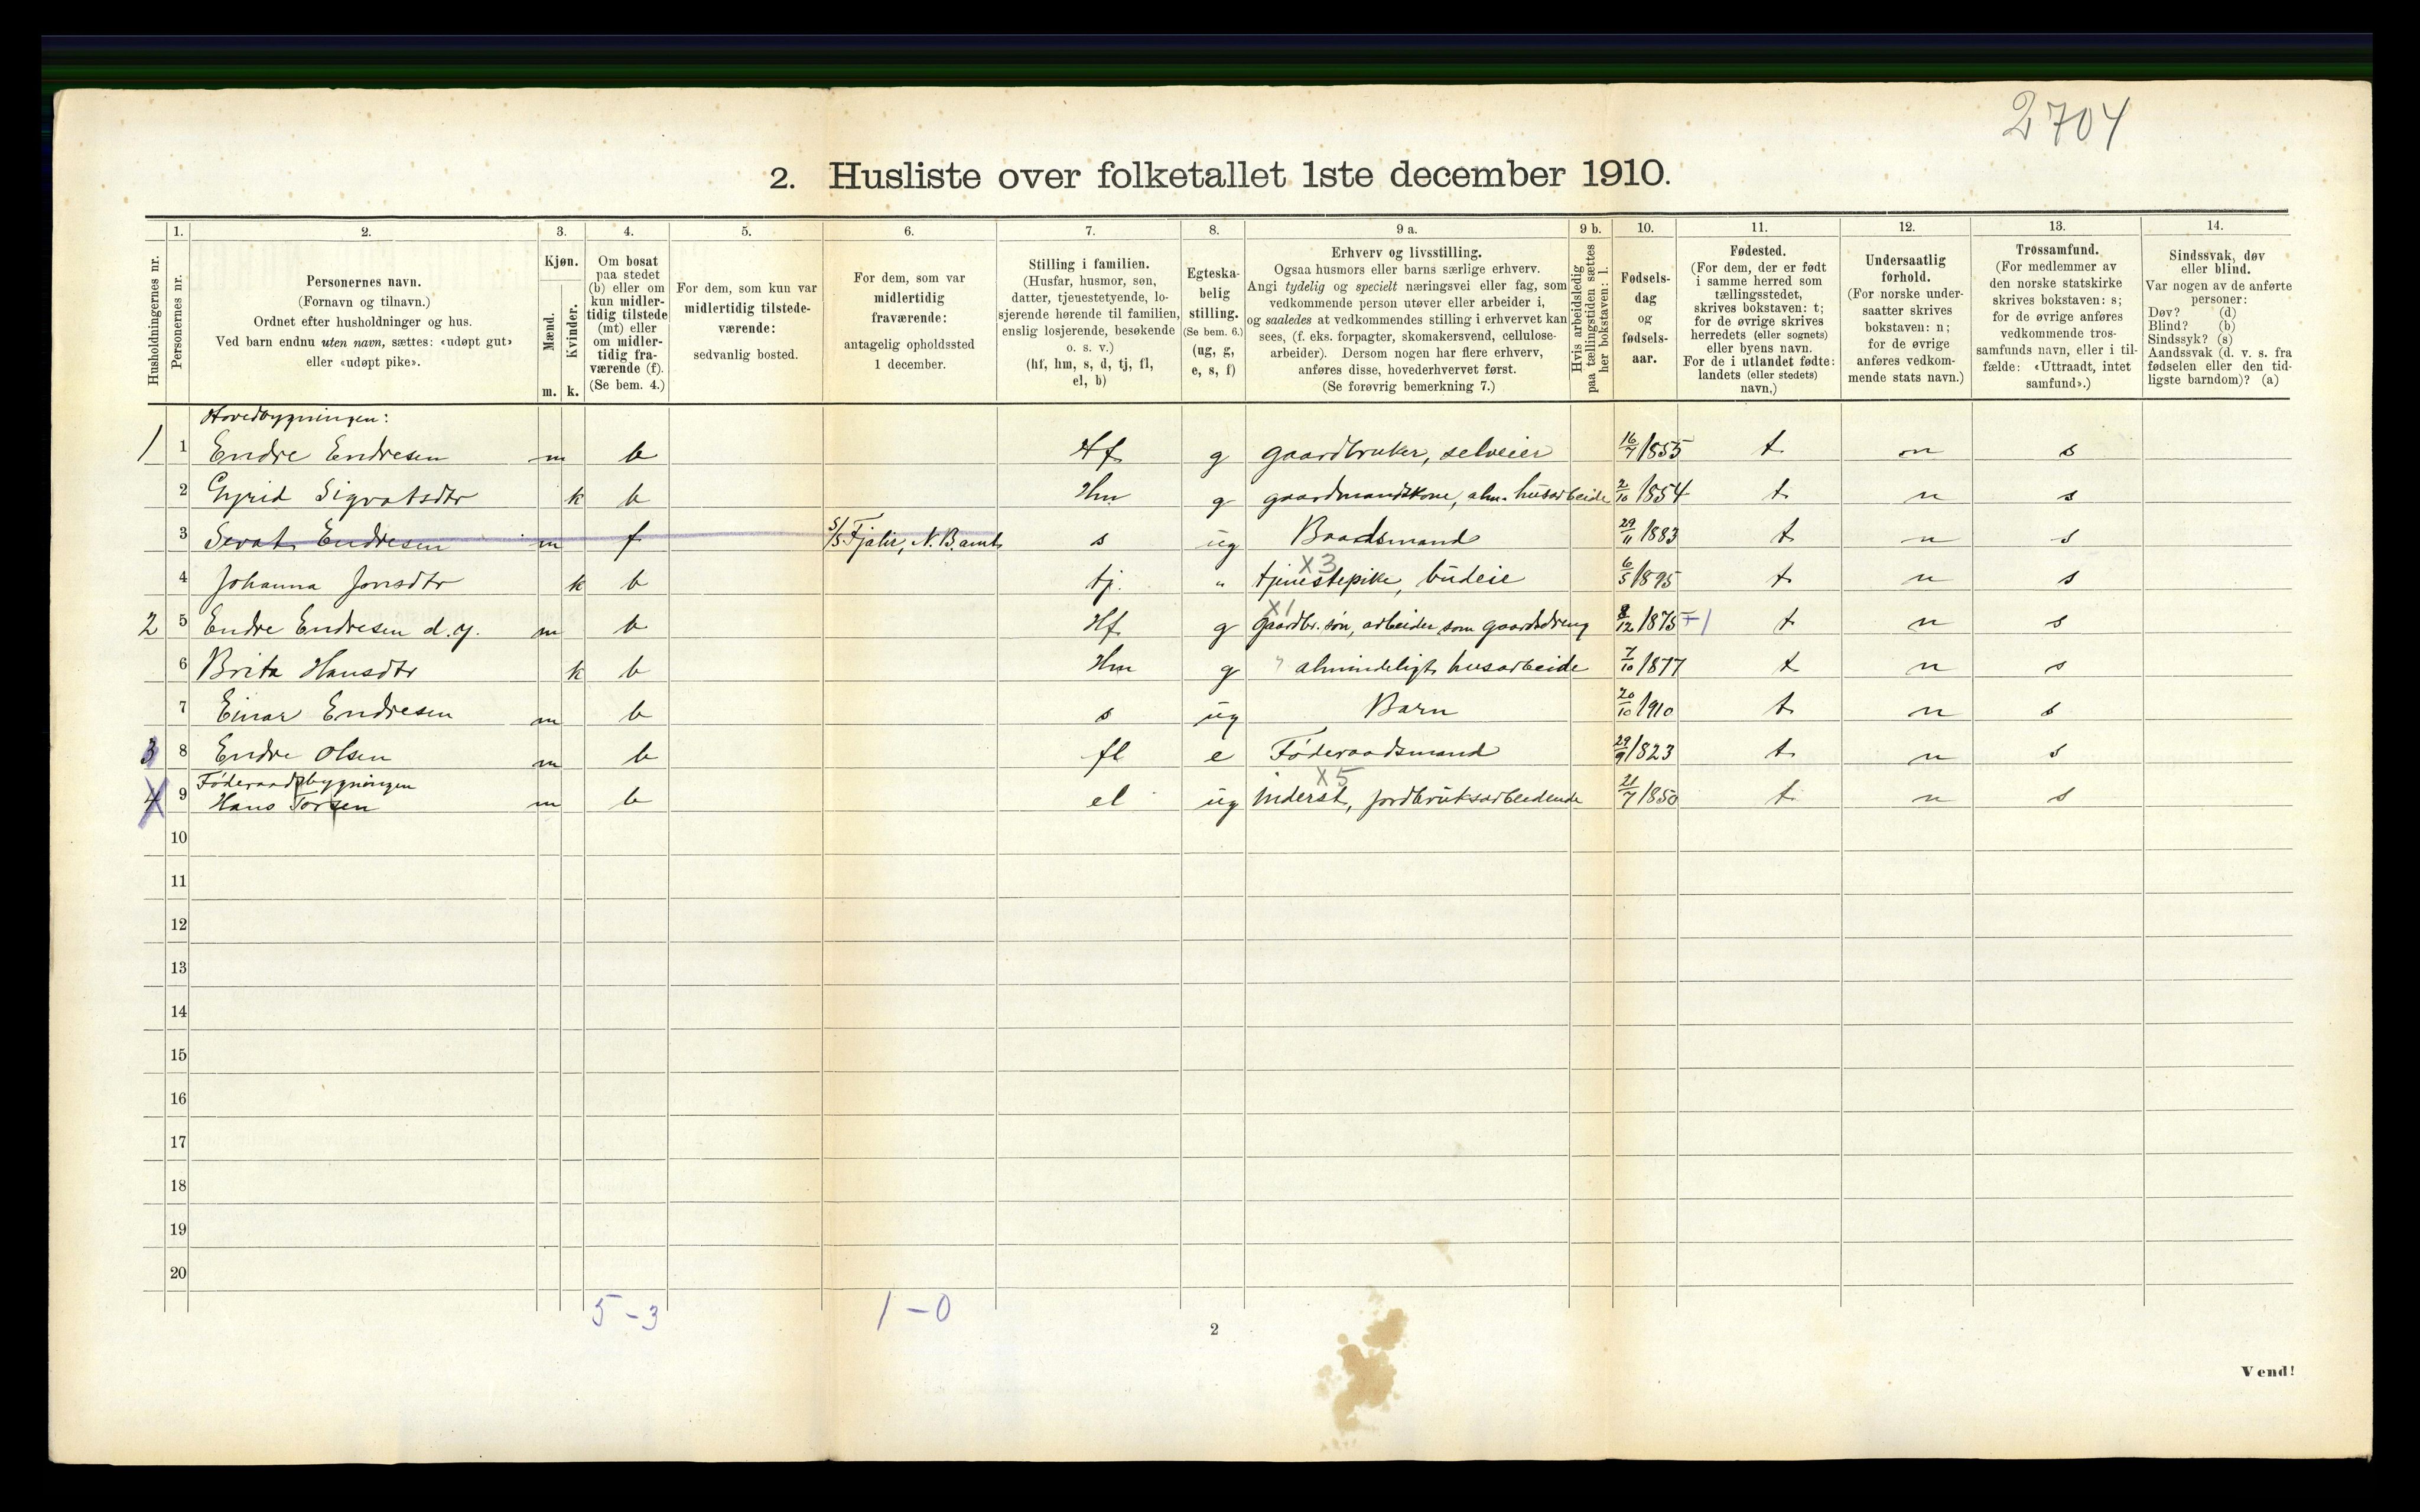 2704
2. Husliste over folketallet 1ste december 1910.
Husholdningernes nr.
1.
Personernes nr.
2.
Personernes navn.
(Fornavn og tilnavn.)
Ordnet efter husholdninger og hus.
Ved barn endnu uten navn, sættes: «udøpt gut»
eller «udøpt pike».
3.
Kjøn.
Mænd.
Kvinder.
m. k.
4.
Om bosat
paa stedet
(b) eller om
kun midler-
tidig tilstede
(mt) eller
om midler-
tidig fra-
værende (f).
(Se bem. 4.)
5.
For dem, som kun var
midlertidig tilstede-
værende:
sedvanlig bosted.
6.
For dem, som var
midlertidig
fraværende:
antagelig opholdssted
1 december.
7.
Stilling i familien.
(Husfar, husmor, søn,
datter, tjenestetyende, lo-
sjerende hørende til familien,
enslig losjerende, besøkende
o. s. v.)
(hf, hm, s, d, tj, fl,
el, b)
8.
Egteska-
belig
stilling.
(Se bem. 6.)
(ug, g,
e, s, f)
9 a.
Erhverv og livsstilling.
Ogsaa husmors eller barns særlige erhverv.
Angi tydelig og specielt næringsvei eller fag, som
vedkommende person utøver eller arbeider i,
og saaledes at vedkommendes stilling i erhvervet kan
sees, (f. eks. forpagter, skomakersvend, cellulose-
arbeider). Dersom nogen har flere erhverv,
anføres disse, hovederhvervet først.
(Se forøvrig bemerkning 7.)
9 b.
Hvis arbeidsledig
paa tællingstiden sættes
her bokstaven: l.
10.
Fødsels-
dag
og
fødsels-
aar.
11.
Fødested.
(For dem, der er født
i samme herred som
tællingsstedet,
skrives bokstaven: t;
for de øvrige skrives
herredets (eller sognets)
eller byens navn.
For de i utlandet fødte:
landets (eller stedets)
navn,)
12.
Undersaatlig
forhold.
(For norske under-
saatter skrives
bokstaven: n;
for de øvrige
anføres vedkom-
mende stats navn.)
13.
Trossamfund.
(For medlemmer av
den norske statskirke
skrives bokstaven: s;
for de øvrige anføres
vedkommende tros-
samfunds navn, eller i til-
fælde: «Uttraadt, intet
samfund».)
14.
Sindssvak, døv
eller blind.
Var nogen av de anførte
personer:
Døv? (d)
Blind? (b)
Sindssyk? (s)
Aandssvak (d. v. s. fra
fødselen eller den tid-
ligste barndom)? (a)
Hovedbygningen:
1 1 Endre Endresen m b Hf g gaardbruker, selveier 16/7 1855 t n s
2 Gyrid Sigvatsdtr k b Hm g gaardmandskone, alm. husarbeide 2/10 1854 t n s
3 Sevat Endresen m f S/S Fjalir, N. B. amt s ug Baadsmand 29/11 1883 t n s
X3
4 Johanna Jonsdtr k b tj. " tjenestepike, budeie 6/5 1895 t n s
X1
2 5 Endre Endresen d.y. m b Hf g Gaardbr. søn, arbeider som gaardsdreng 8/12 1875 +1 t n s
6 Brita Hansdtr k b Hm g " almindeligt husarbeide 7/10 1877 t n s
7 Einar Endresen m b s ug Barn 20/10 1910 t n s
3 8 Endre Olsen m b fl e Føderaadsmand 29/9 1823 t n s
Føderaadsbygningen
X5
4 9 Hans m b el ug Inderst, jordbruksarbeidende 21/7 1850 t n s
10
11
12
13
14
15
16
17
18
19
20
5 - 3
1 - 0
2
Vend!